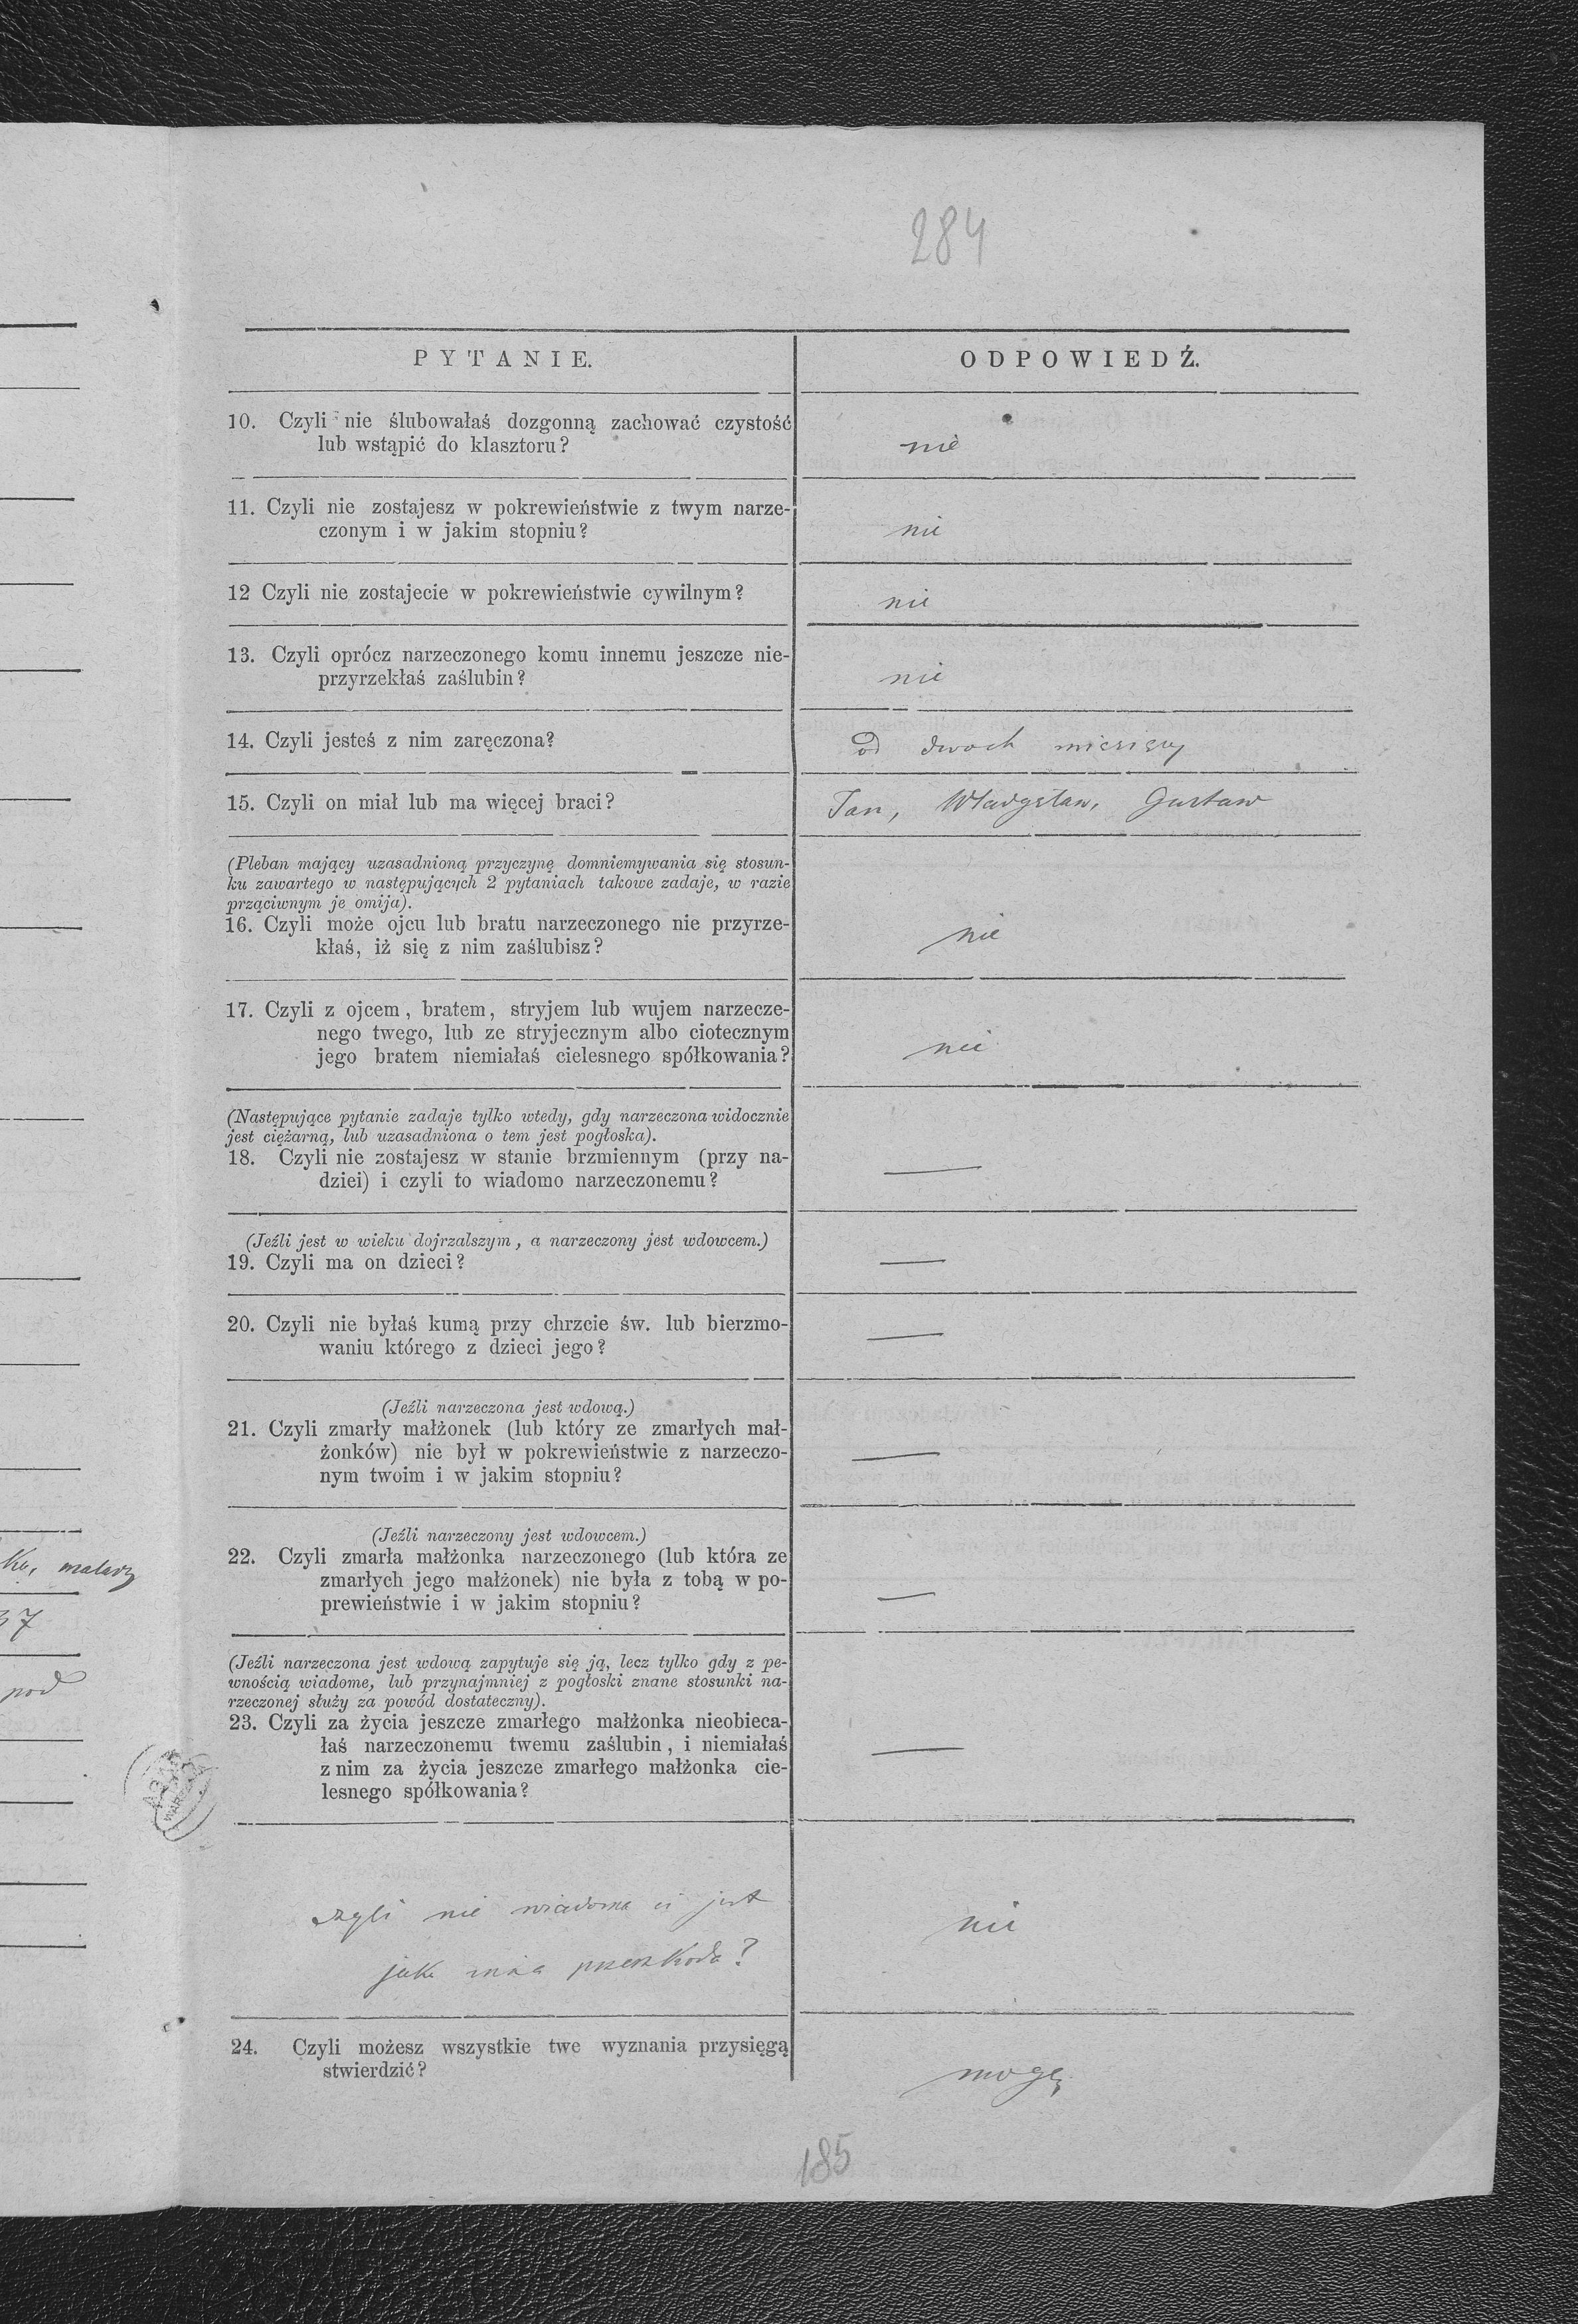 284
PYTANIE.
ODPOWIEDŹ.
10. Czyli nie ślubowałaś dozgonną zachować czystość
lub wstąpić do klasztoru?
nie
11. Czyli nie zostajesz w pokrewieństwie z twym narze-
czonym i w jakim stopniu?
nie
12 Czyli nie zostajecie w pokrewieństwie cywilnym?
nie
13. Czyli oprócz narzeczonego komu innemu jeszcze nie-
przyrzekłaś zaślubin?
nie
14. Czyli jesteś z nim zaręczona?
od dwoch miesięcy
15. Czyli on miał lub ma więcej braci?
Jan, Władysław, Gustaw
(Pleban mający uzasadnioną przyczynę domniemywania się stosun-
ku zawartego w następujących 2 pytaniach takowe zadaje, w razie
prząciwnym je omija).
16. Czyli może ojcu lub bratu narzeczonego nie przyrze-
kłaś, iż się z nim zaślubisz?
nie
17. Czyli z ojcem, bratem, stryjem lub wujem narzecze-
nego twego, lub ze stryjecznym albo ciotecznym
jego bratem niemiałaś cielesnego spółkowania?
nie
(Następujące pytanie zadaje tylko wtedy, gdy narzeczona widocznie
jest ciężarną, lub uzasadniona o tem jest pogłoska).
18. Czyli nie zostajesz w stanie brzmiennym (przy na-
dziei) i czyli to wiadomo narzeczonemu?
—
(Jeźli jest w wieku dojrzalszym, a narzeczony jest wdowcem.)
19. Czyli ma on dzieci?
—
20. Czyli nie byłaś kumą przy chrzcie św. lub bierzmo-
waniu którego z dzieci jego?
—
(Jeźli narzeczona jest wdową.)
21. Czyli zmarły małżonek (lub który ze zmarłych mał-
żonków) nie był w pokrewieństwie z narzeczo-
nym twoim i w jakim stopniu?
—
(Jeźli narzeczony jest wdowcem.)
22. Czyli zmarła małżonka narzeczonego (lub która ze
zmarłych jego małżonek) nie była z tobą w po-
prewieństwie i w jakim stopniu?
—
(Jeźli narzeczona jest wdową zapytuje się ją, lecz tylko gdy z pe-
wnością wiadome, lub przynajmniej z pogłoski znane stosunki na-
rzeczonej służy za powód dostateczny).
23. Czyli za życia jeszcze zmarłego małżonka nieobieca-
łaś narzeczonemu twemu zaślubin, i niemiałaś
z nim za życia jeszcze zmarłego małżonka cie-
lesnego spółkowania?
—
czyli nie wiadoma ci jest
jaka inna przeszkoda?
nie
24. Czyli możesz wszystkie twe wyznania przysięgą
stwierdzić?
mogę
185
malarz
37
pod